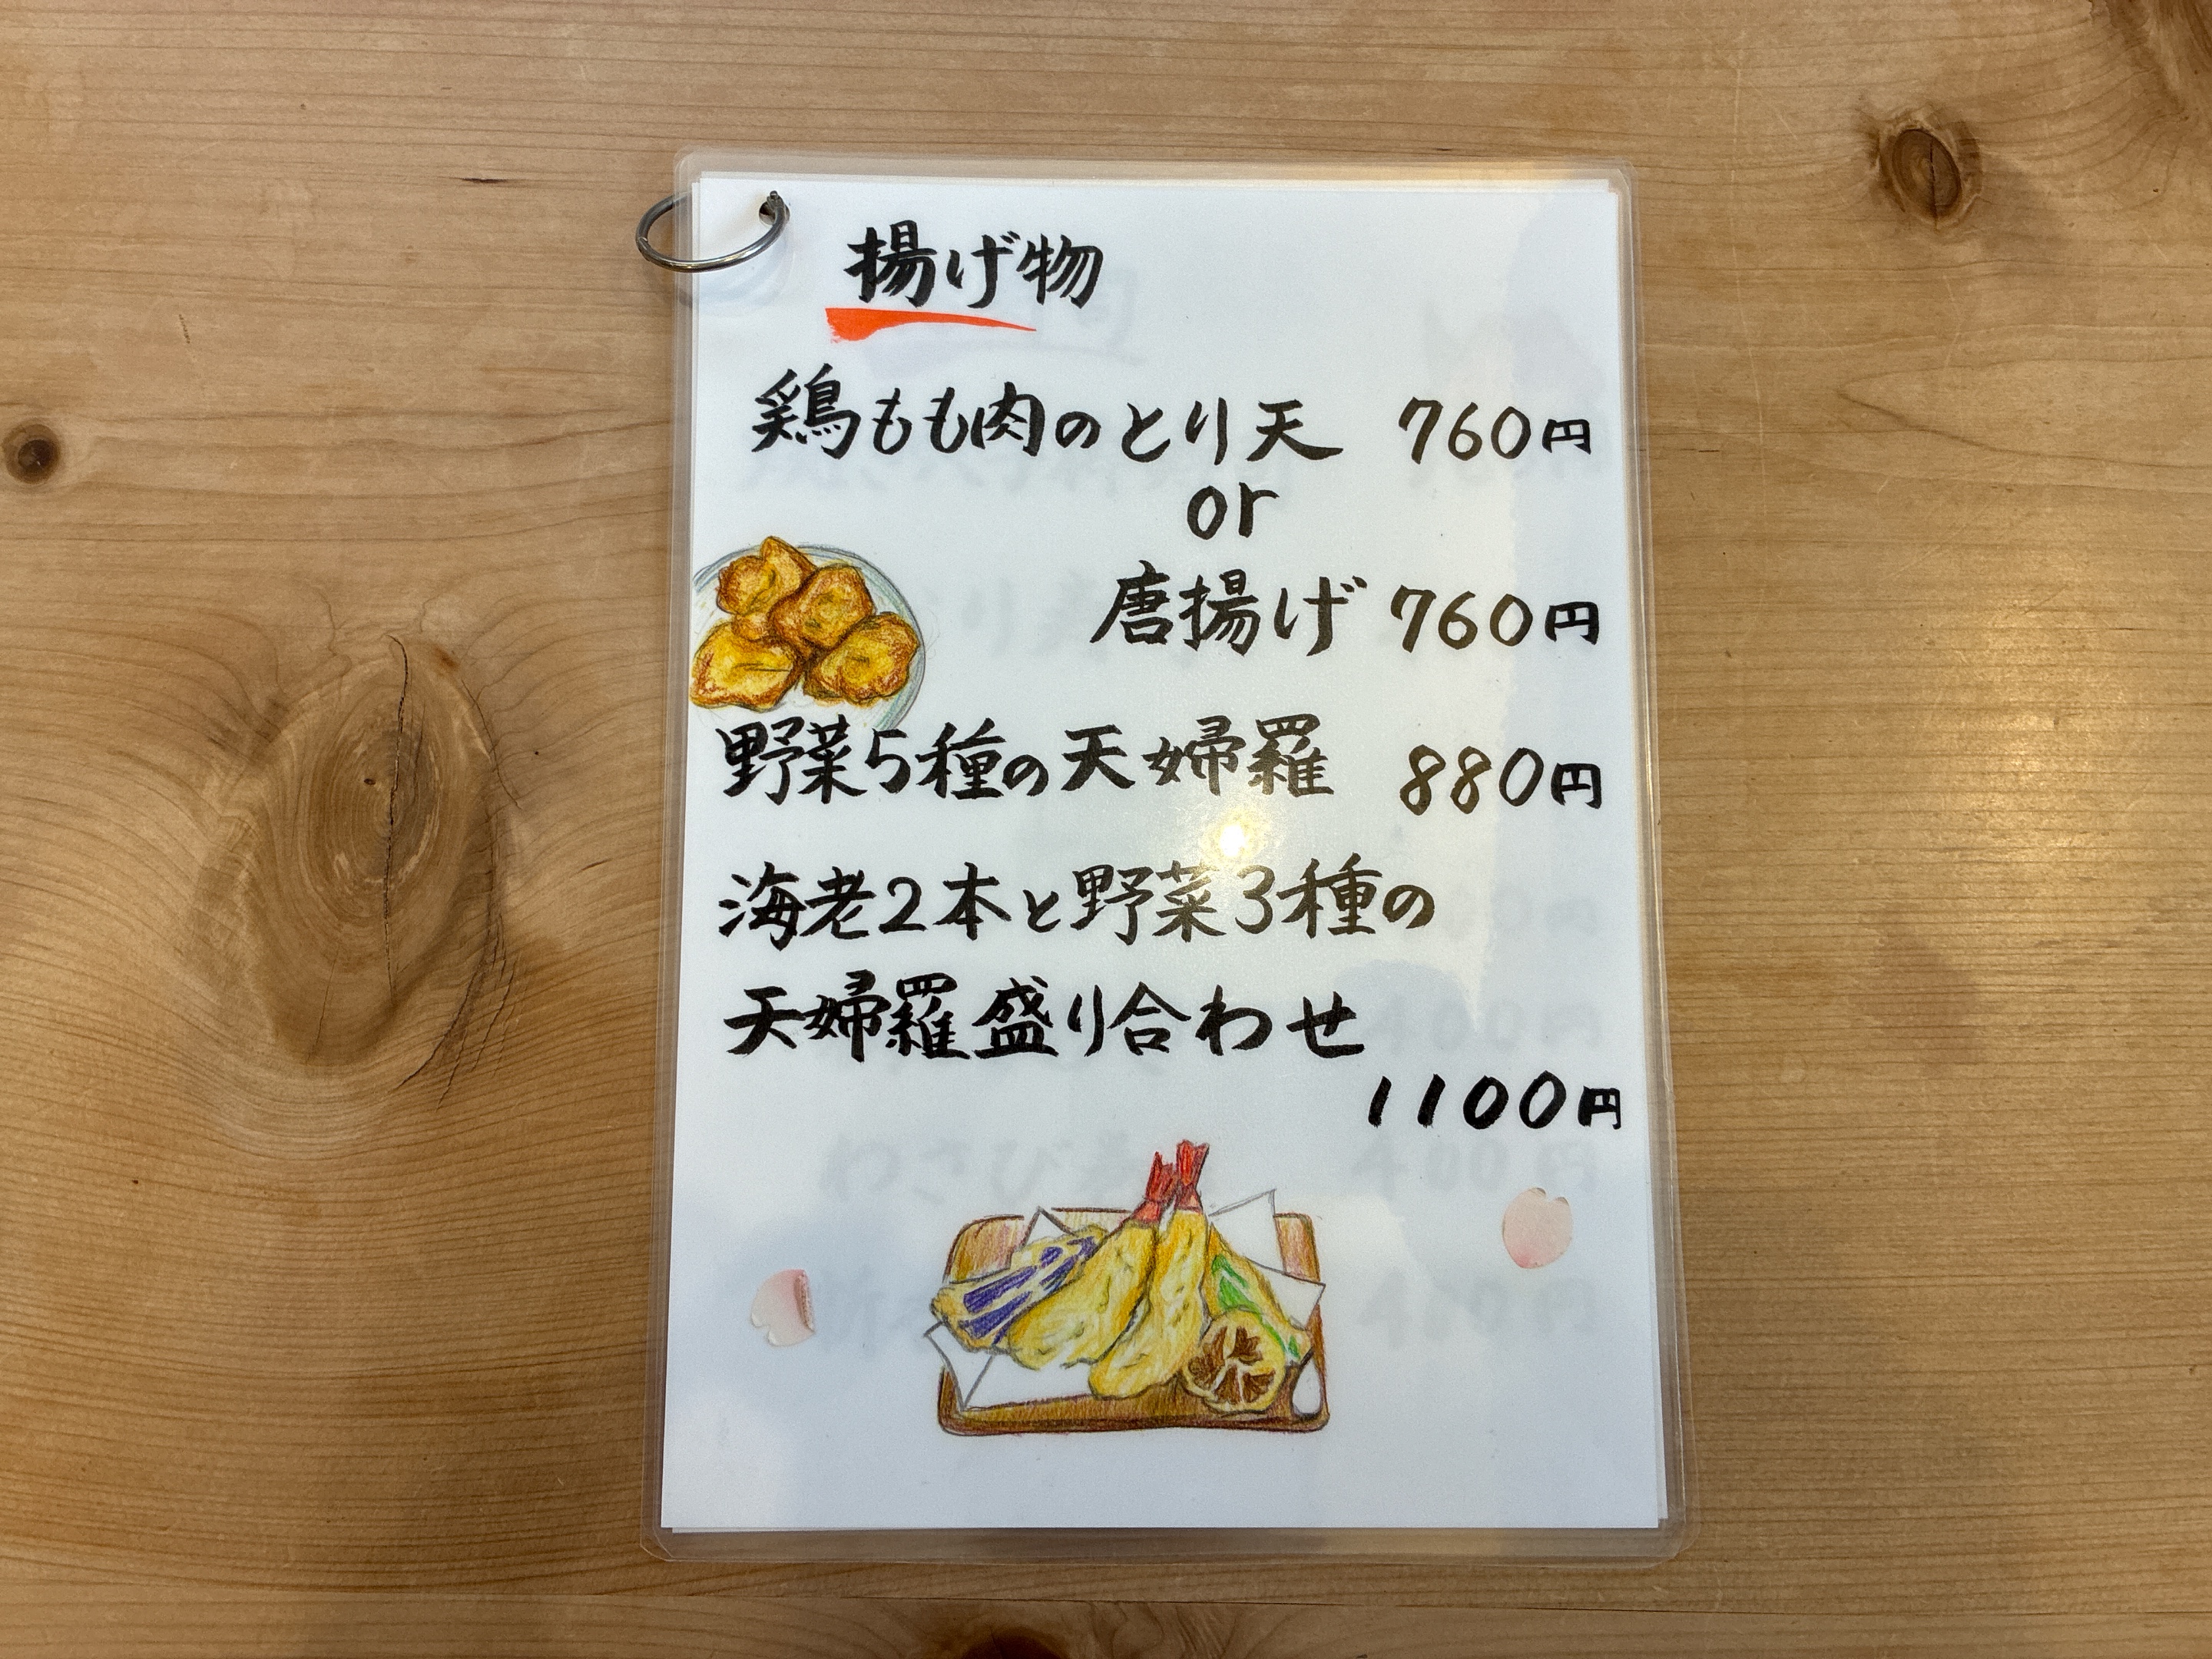 揚げ物
鶏もも肉のとり天 760円
or
唐揚げ 760円
野菜5種の天婦羅 880円
海老2本と野菜3種の
天婦羅盛り合わせ
1100円